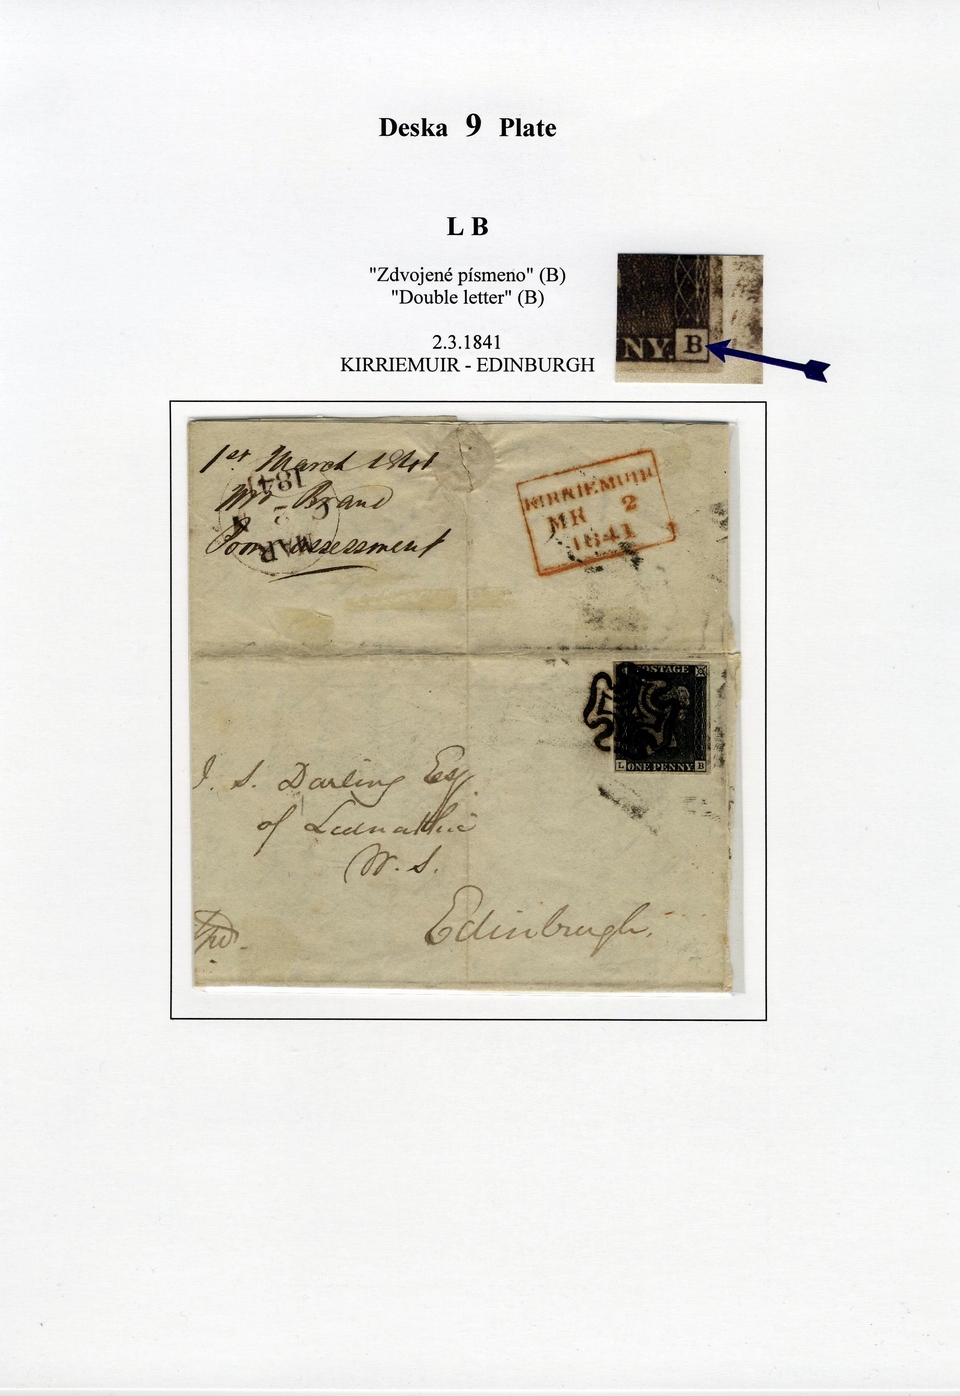 Deska 9 Plate
L B
"Zdvojené písmeno" (B)
"Double letter" (B)
2.3.1841
KIRRIEMUIR - EDINBURGH
NY. B
1st March 1841
1841
Mr Brand
MAR
assessment
KIRRIEMUIR
MR 2
1841
POSTAGE
L ONE PENNY B
J. S. Darling Esq.
of
W. S.
Edinburgh.